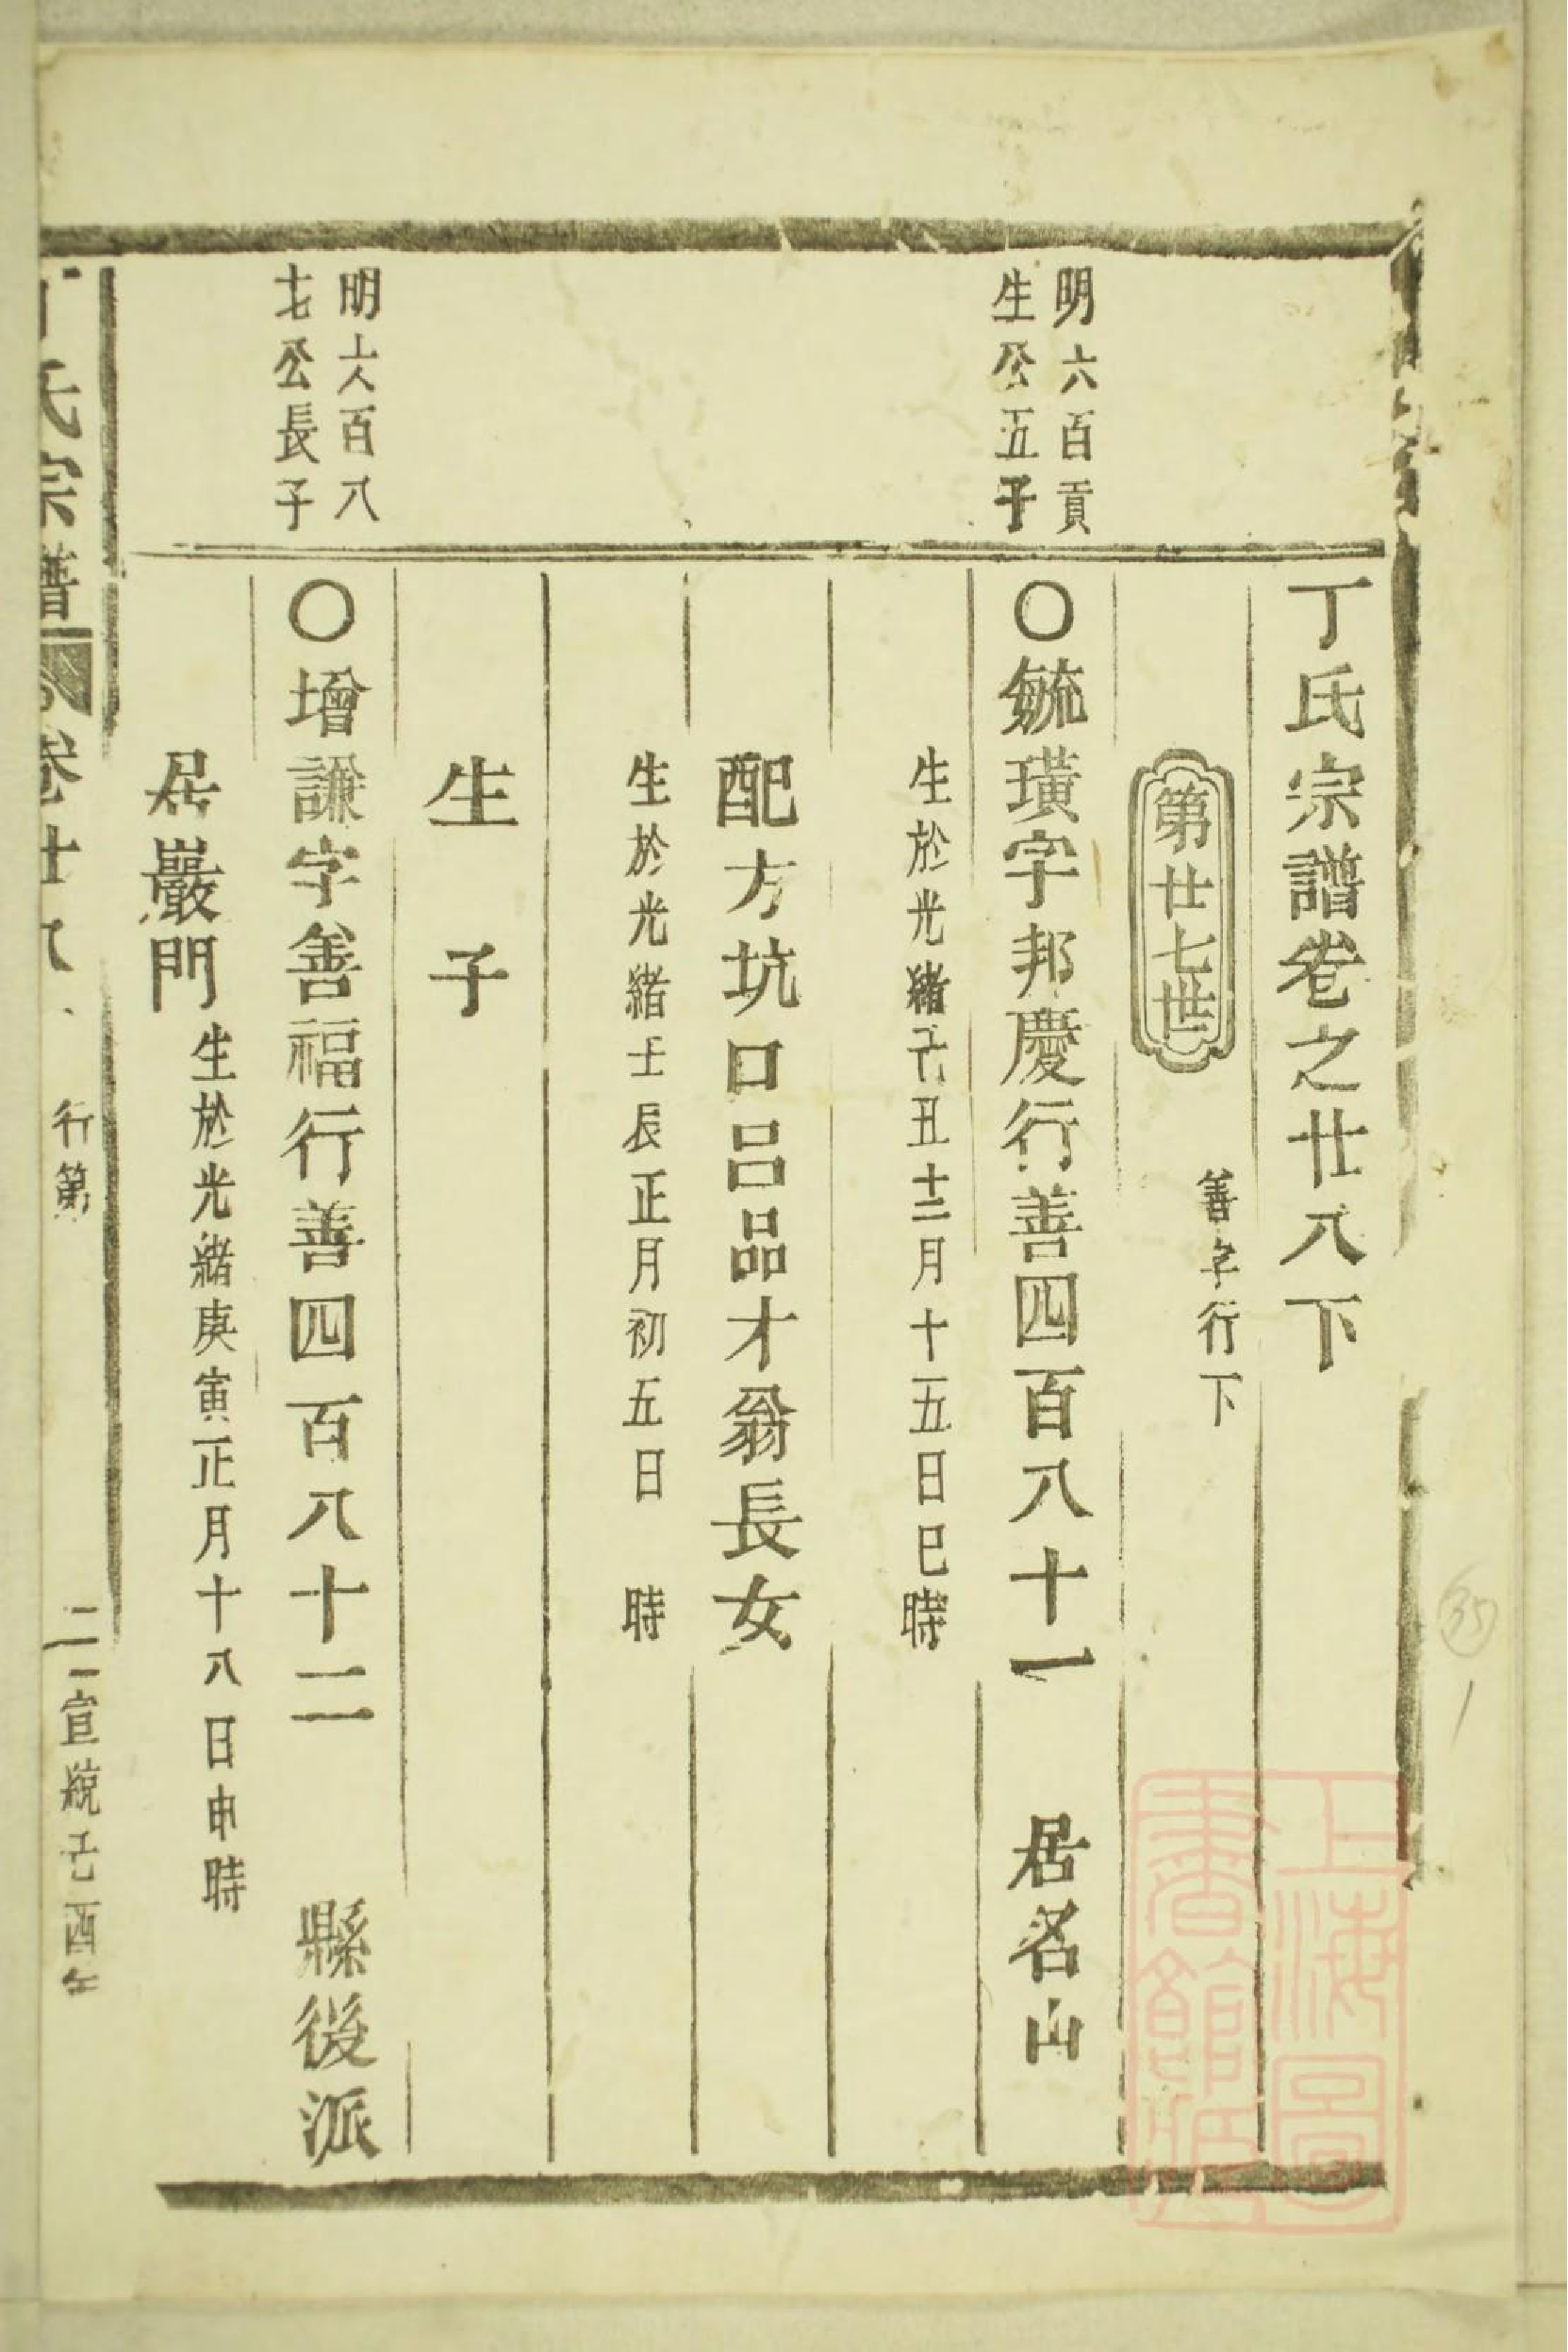 丁氏宗譜卷之廿八下
第廿七世
善字行下
明六百貢
生公五子
〇毓璜字邦慶行善四百八十一 居名山
生於光緒己丑十二月十五日巳時
配方坑口呂品才翁長女
生於光緒壬辰正月初五日 時
生 子
明六百八
十七公長子
〇增謙字善福行善四百八十二 縣後派
居巖門
生於光緒庚寅正月十八日申時
丁氏宗譜 卷廿八 行第 二 宣統己酉年
上海圖書館藏